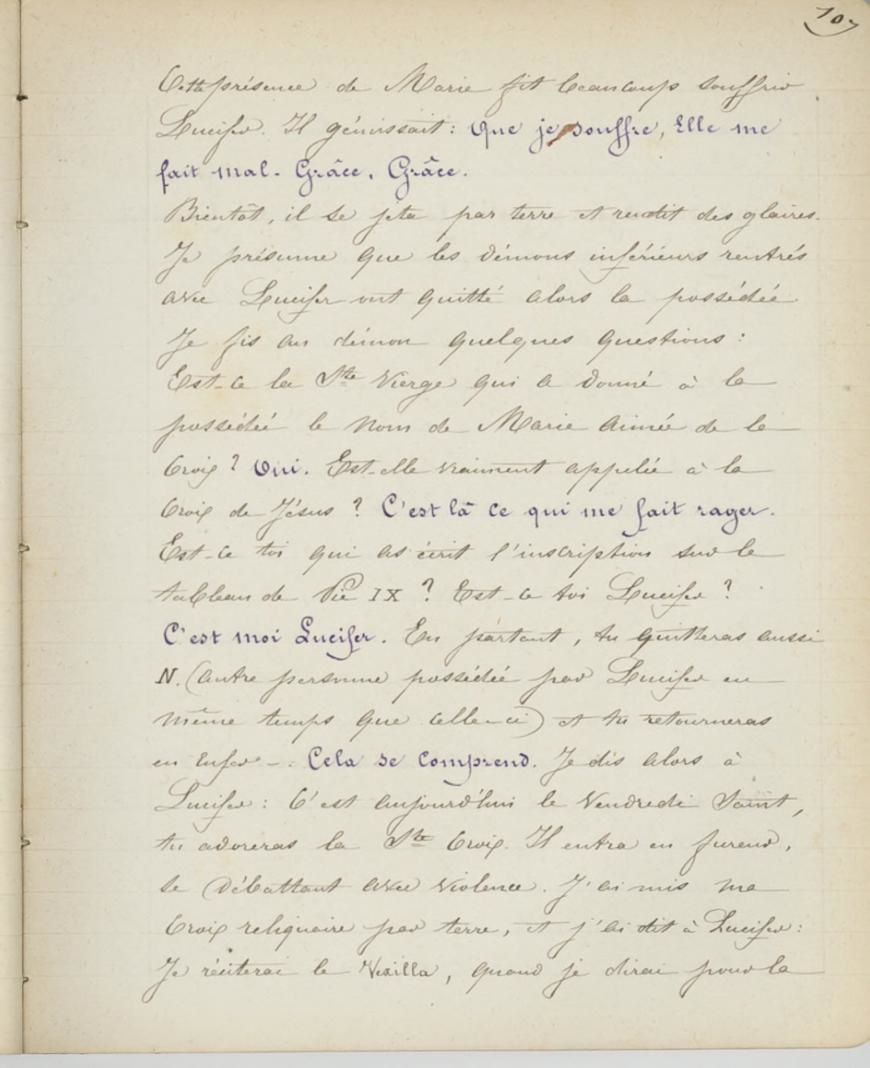 107
Cette présence de Marie fit beaucoup souffrir
Lucifer. Il gémissait: Que je souffre, Elle me
fait mal. Grâce, Grâce.
Bientôt, il se jeta par terre et rendit des glaires.
Je présume que les démons inférieurs rentrés
avec Lucifer ont quitté alors la possédée
Je fis au démon quelques questions:
Est-ce la Ste Vierge qui a donné à la
possédée le nom de Marie Aimée de la
Croix? Oui. Est-elle vraiment appelée à la
Croix de Jésus? C'est là ce qui me fait rager.
Est-ce toi qui as écrit l'inscription sur le
tableau de Pie IX? Est-ce toi Lucifer?
C'est moi Lucifer. En partant, tu quitteras aussi
N. (autre personne possédée par Lucifer en
même temps que celle-ci) et tu retourneras
en Enfer-. Cela se comprend. Je dis alors à
Lucifer: C'est aujourd'hui le Vendredi Saint,
tu adoreras la Ste Croix. Il entra en fureur,
se débattant avec violence. J'ai mis ma
Croix reliquaire par terre, et j'ai dit à Lucifer:
Je réciterai le Vexilla, quand je dirai pour la